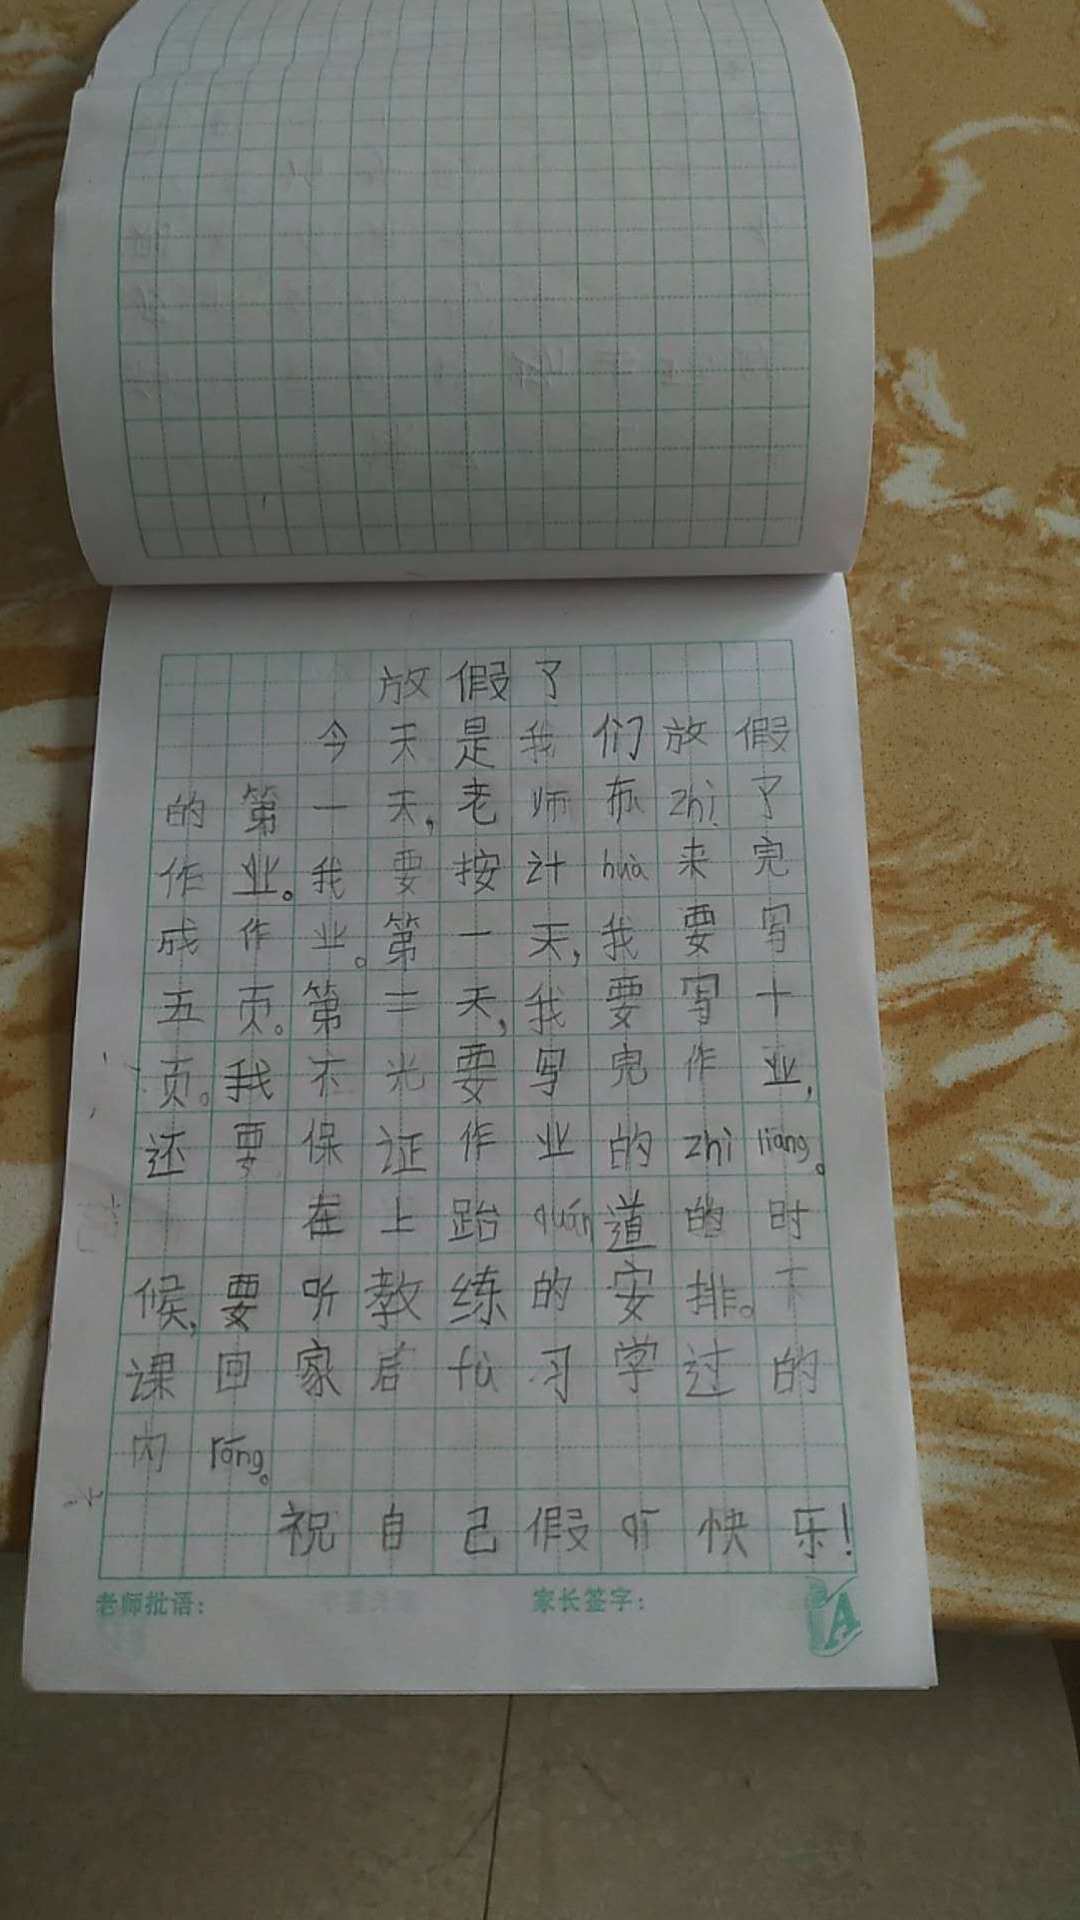 放假了
今天是我们放假
的第一天,老师布zhì了
作业。我要按计huà来完
成作业。第一天,我要写
五页。第二天,我要写十
页。我不光要写完作业,
还要保证作业的zhìliàng。
在上跆quán道的时
候,要听教练的安排。下
课回家后fù习学过的
内róng。
祝自己假听快乐!
老师批语:
家长签字:
A